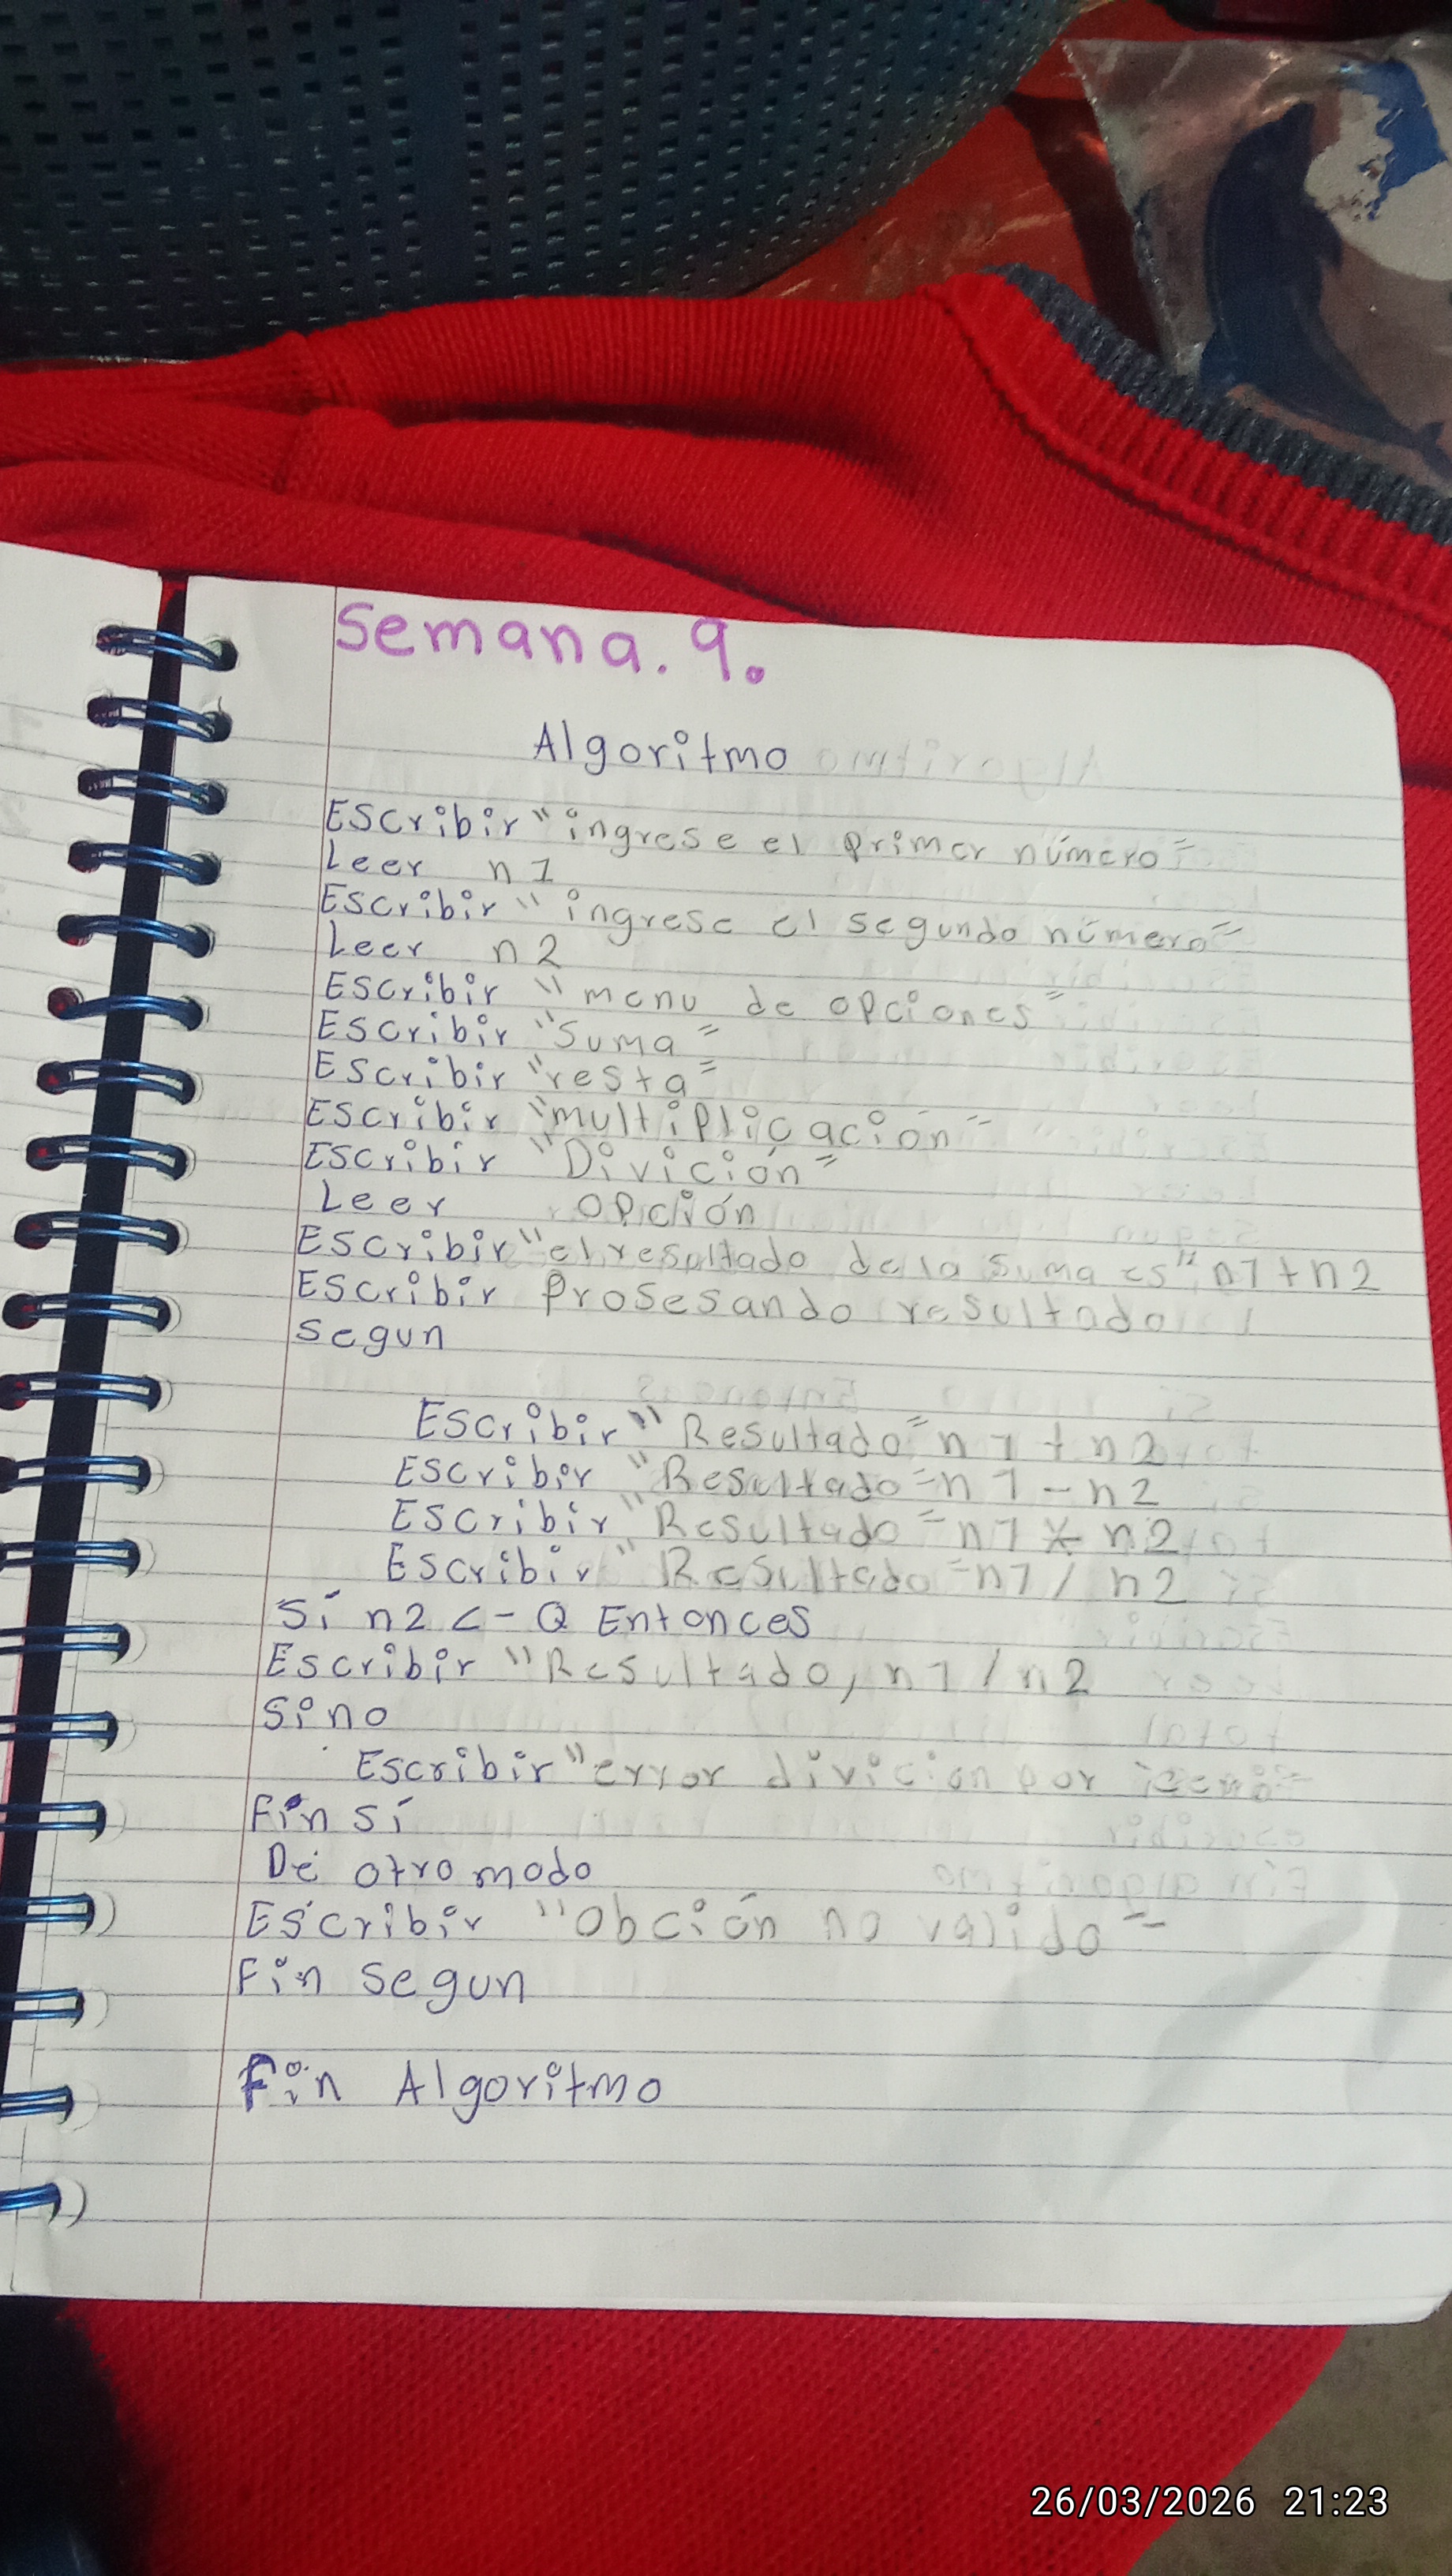 Semana. 9.
Algoritmo
Escribir "ingrese el primer número"
Leer n1
Escribir "ingrese el segundo número"
Leer n2
Escribir "menu de opciones"
Escribir "suma"
Escribir "resta"
Escribir "multiplicación"
Escribir "Divición"
Leer opción
Escribir "el resultado de la suma es" n1+n2
Escribir Prosesando resultado
segun
Escribir "Resultado" n1+n2
Escribir "Resultado" n1-n2
Escribir "Resultado" n1*n2
Escribir "Resultado" n1/n2
Sí n2 <- 0 Entonces
Escribir "Resultado, n1/n2
Sino
Escribir "error divicion por
Fin sí
De otro modo
Escribir "Obción no valido"
Fin segun
Fin Algoritmo
26/03/2026 21:23